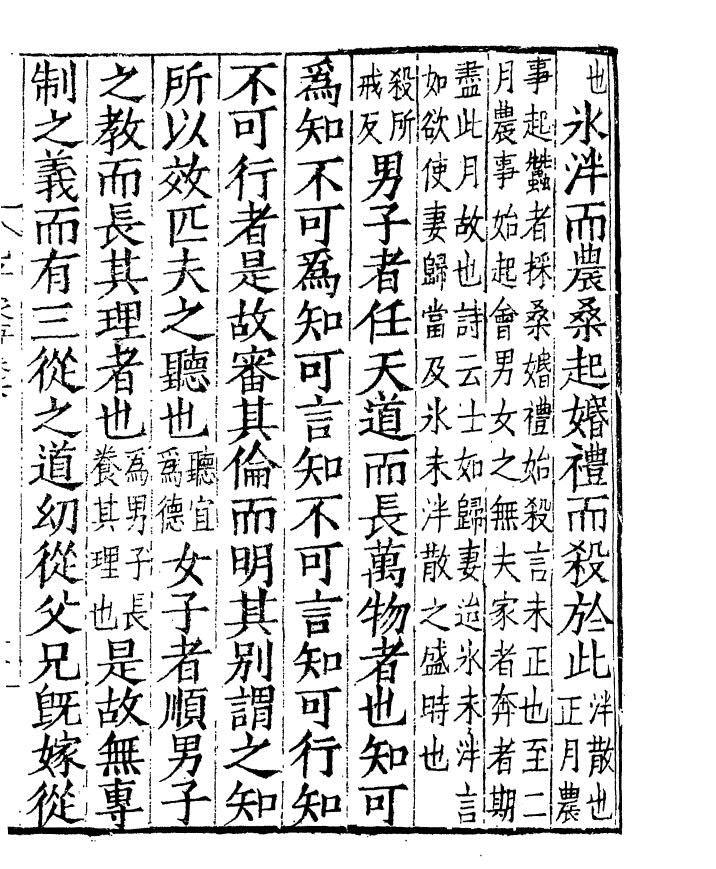 也氷泮而農桑起婚禮而殺於此泮散也正月農
事起蠶者採桑婚禮始殺言未正也至二
月農事始起會男女之無夫家者奔者期
盡此月故也詩云士如歸妻迨氷未泮言
如欲使妻歸當及氷未泮散之盛時也
殺所戒反男子者任天道而長萬物者也知可
爲知不可爲知可言知不可言知可行知
不可行者是故審其倫而明其别謂之知
所以效匹夫之聽也聽宜爲德女子者順男子
之教而長其理者也爲男子長養其理也是故無專
制之義而有三從之道㓜從父兄旣嫁從